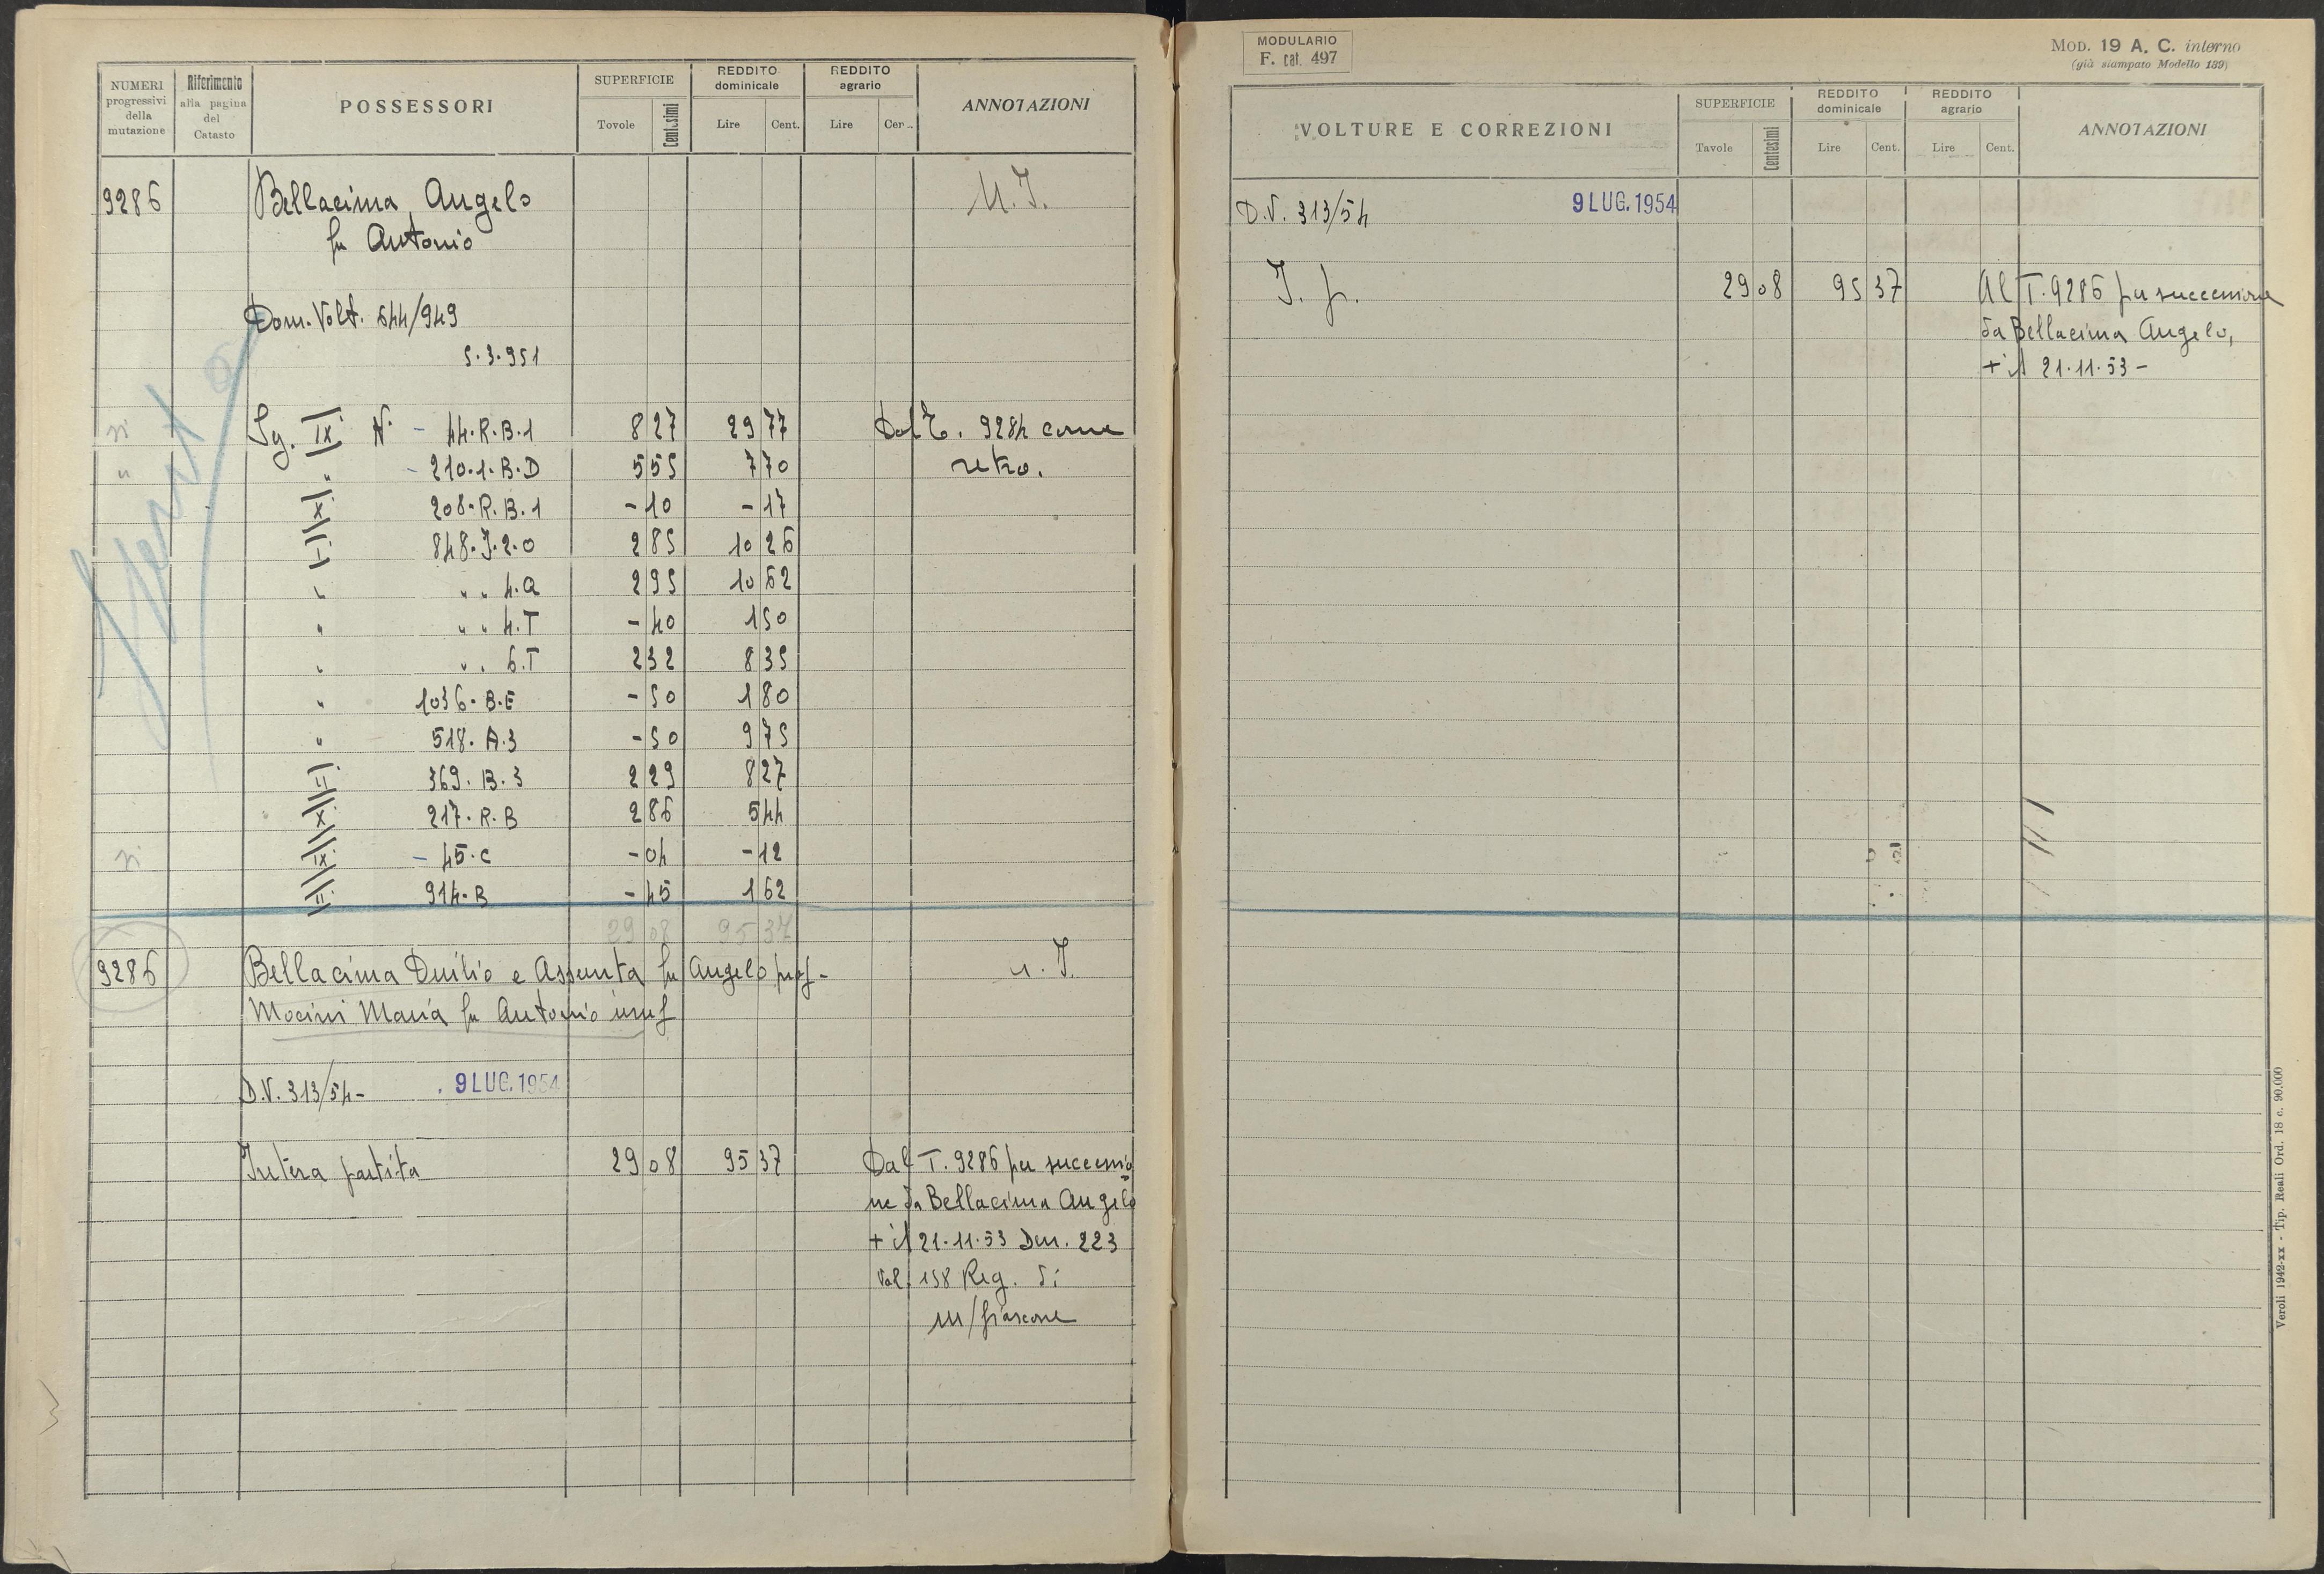 NUMERI progressivi della mutazione | Riferimento alla pagina del Catasto | POSSESSORI | SUPERFICIE Tavole Centesimi | REDDITO dominicale Lire Cent. | REDDITO agrario Lire Cen.. | ANNOTAZIONI
9286 Bellacima Angelo U.I.
fu Antonio
Dom. Volt. 544/949
5.3.951
Sg. IX N. - 44.R.B.1 8 27 29 77 Dal T. 9284 come
" - 210.1.B.D 5 55 7 70 retro.
X 208.R.B.1 - 10 - 17
I 848.I.2.0 2 85 10 26
" " " 4.a 2 95 10 62
" " " 4.T - 40 1 50
" " " 6.T 2 32 8 35
" 1036.B.E - 50 1 80
" 518.A.3 - 50 9 75
II 369.B.3 2 29 8 27
X 217.R.B 2 86 5 44
IX - 45.C - 04 - 12
II 914.B - 45 1 62
29 08 95 37
9286 Bellacima Duilio e Assunta fu Angelo prof- U.I.
Mocini Maria fu Antonio usuf
D.V. 313/54- 9 LUG. 1954
Intera partita 29 08 95 37 Dal T. 9286 per successio
ne da Bellacima Angelo
+ il 21.11.53 Den. 223
Vol. 158 Reg. di
M/fiascone
MODULARIO
F. cat. 497
MOD. 19 A. C. interno
(già stampato Modello 189)
VOLTURE E CORREZIONI | SUPERFICIE Tavole Centesimi | REDDITO dominicale Lire Cent. | REDDITO agrario Lire Cent. | ANNOTAZIONI
D.V. 313/54 9 LUG. 1954
I. p. 29 08 95 37 Al T. 9286 per successione
da Bellacima Angelo,
+ il 21.11.53 -
Veroli 1942-XX - Tip. Reali Ord. 18 c. 90.000